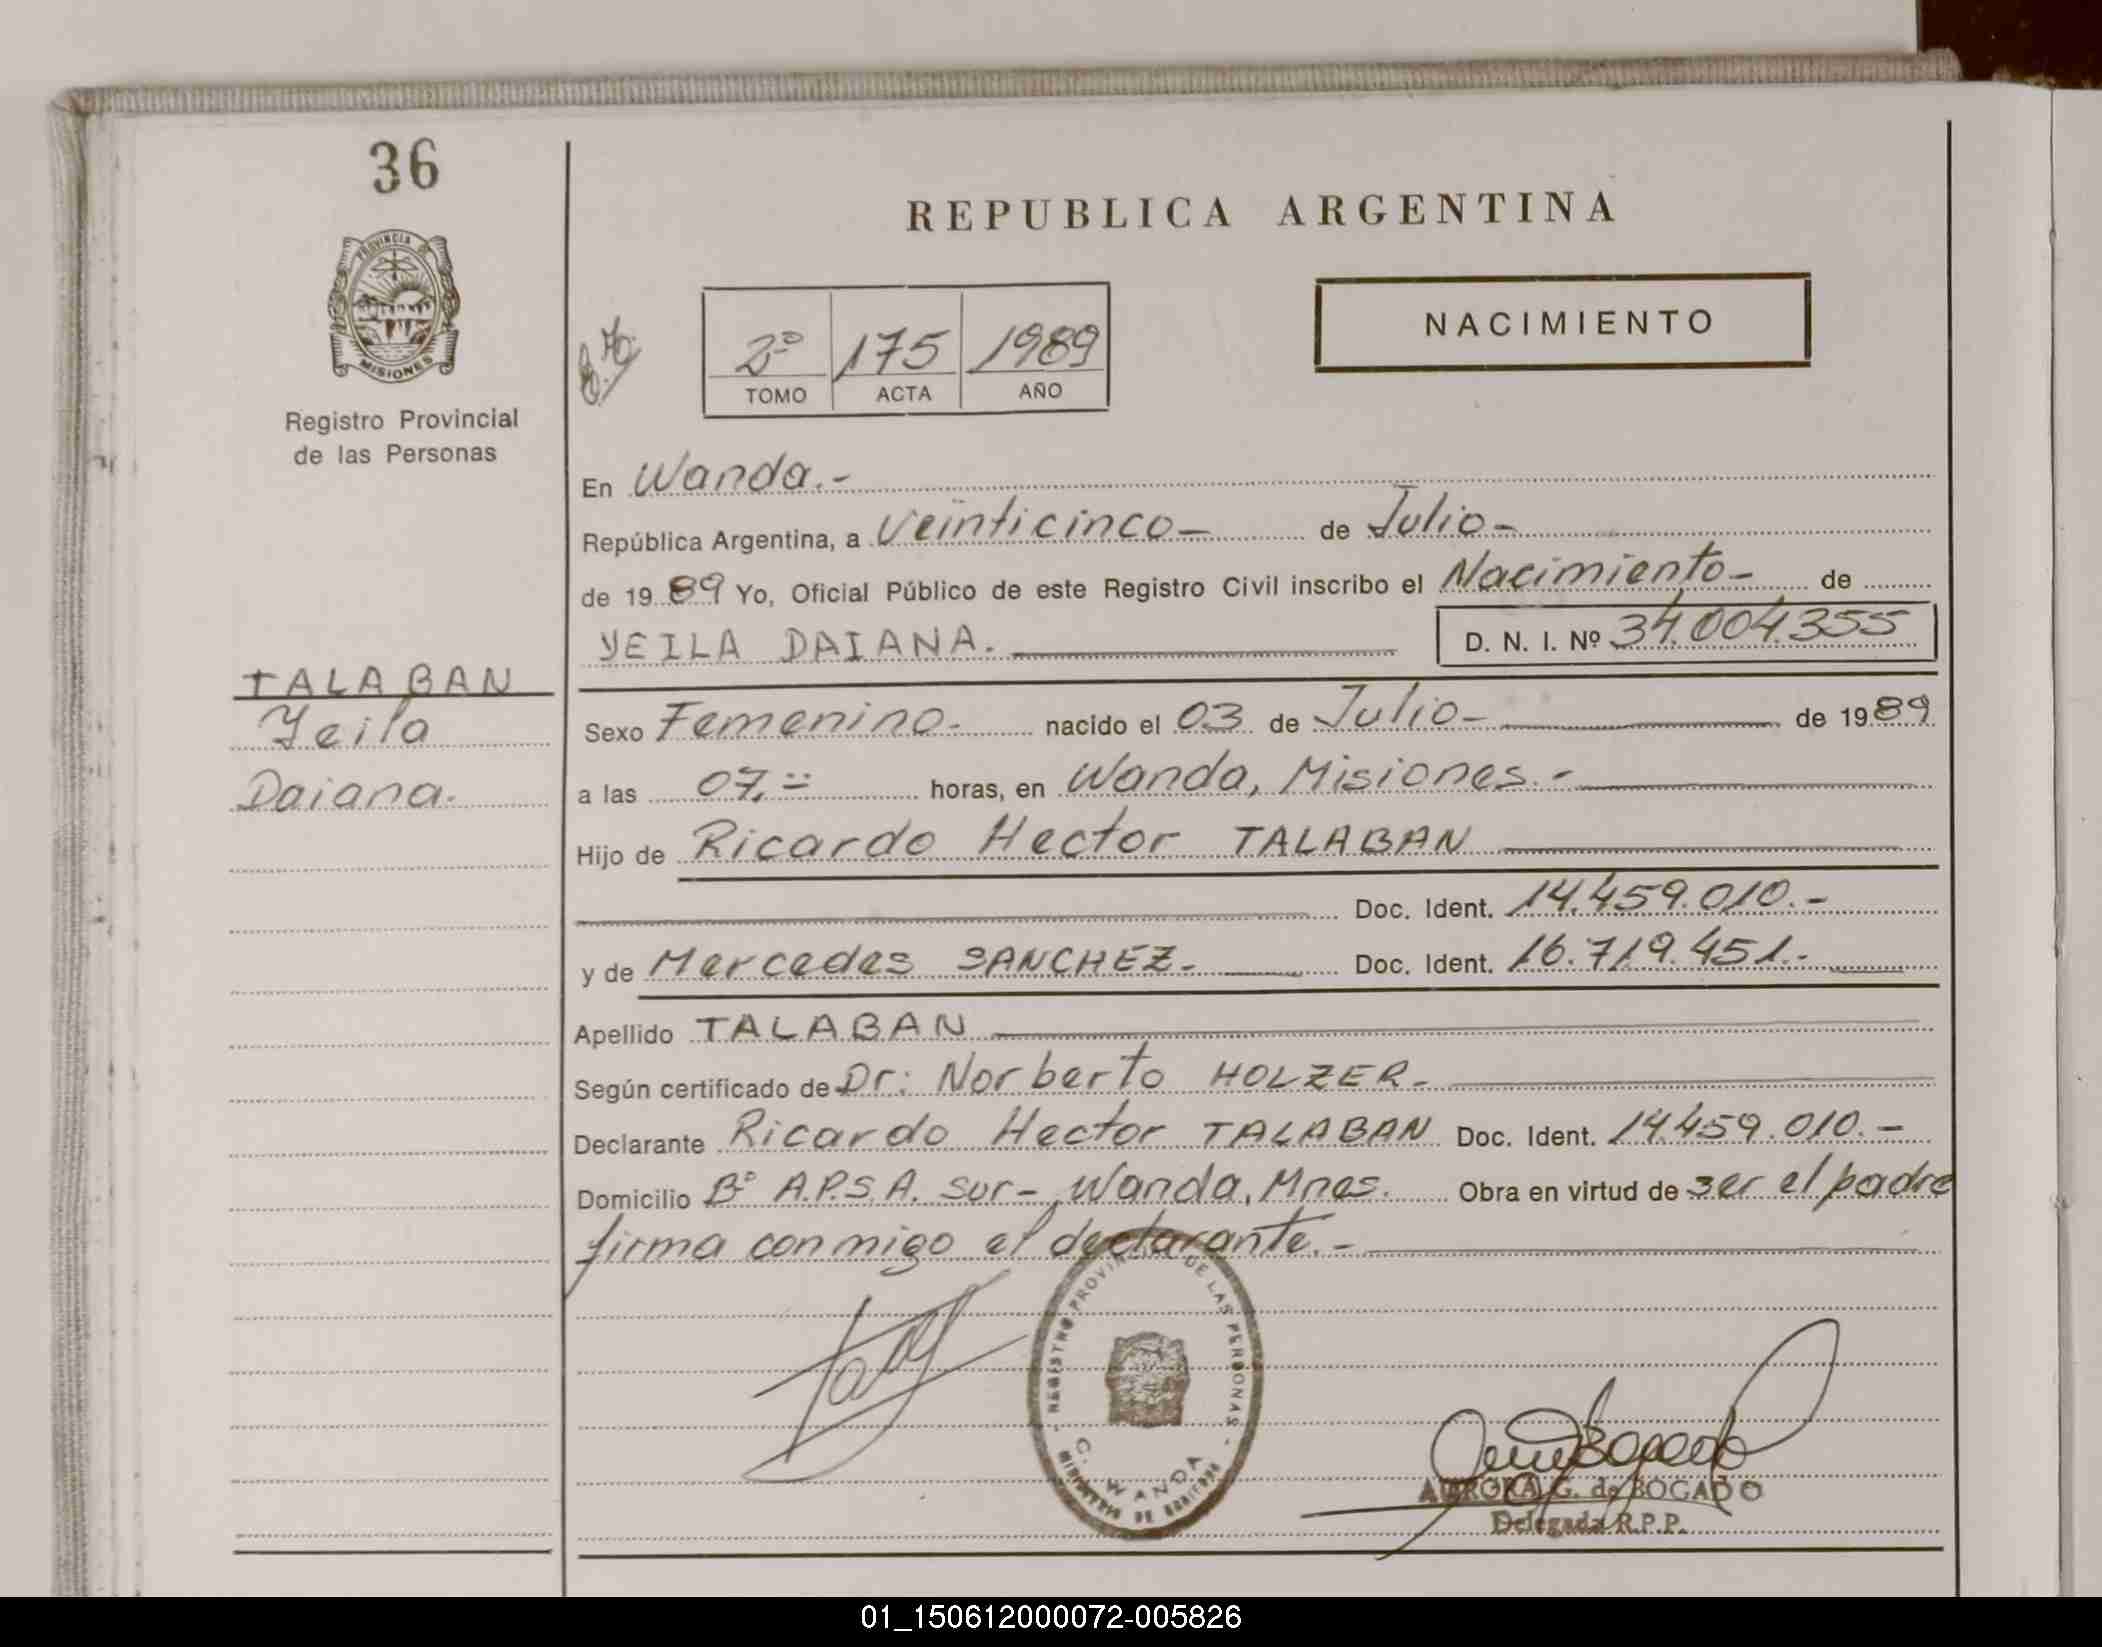 36
PROVINCIA DE
MISIONES
Registro Provincial
de las Personas
TALABAN
Yeila
Daiana.
REPUBLICA ARGENTINA
2º 175 1989
TOMO ACTA AÑO
NACIMIENTO
En Wanda.-
República Argentina, a Veinticinco- de Julio-
de 1989 Yo, Oficial Público de este Registro Civil inscribo el Nacimiento- de
YEILA DAIANA. D. N. I. Nº 34.004.355
Sexo Femenino.- nacido el 03 de Julio- de 1989
a las 07,-- horas, en Wanda, Misiones.-
Hijo de Ricardo Hector TALABAN
Doc. Ident. 14.459.010.-
y de Mercedes SANCHEZ.- Doc. Ident. 16.719.451.-
Apellido TALABAN
Según certificado de Dr: Norberto HOLZER.-
Declarante Ricardo Hector TALABAN Doc. Ident. 14.459.010.-
Domicilio Bº A.P.S.A. sur-, Wanda, Mnes. Obra en virtud de ser el padre
firma conmigo el declarante.-
REGISTRO PROVINCIAL DE LAS PERSONAS
C. WANDA
MINISTERIO DE GOBIERNO
AURORA G. de BOGADO
Delegada R.P.P.
01_150612000072-005826